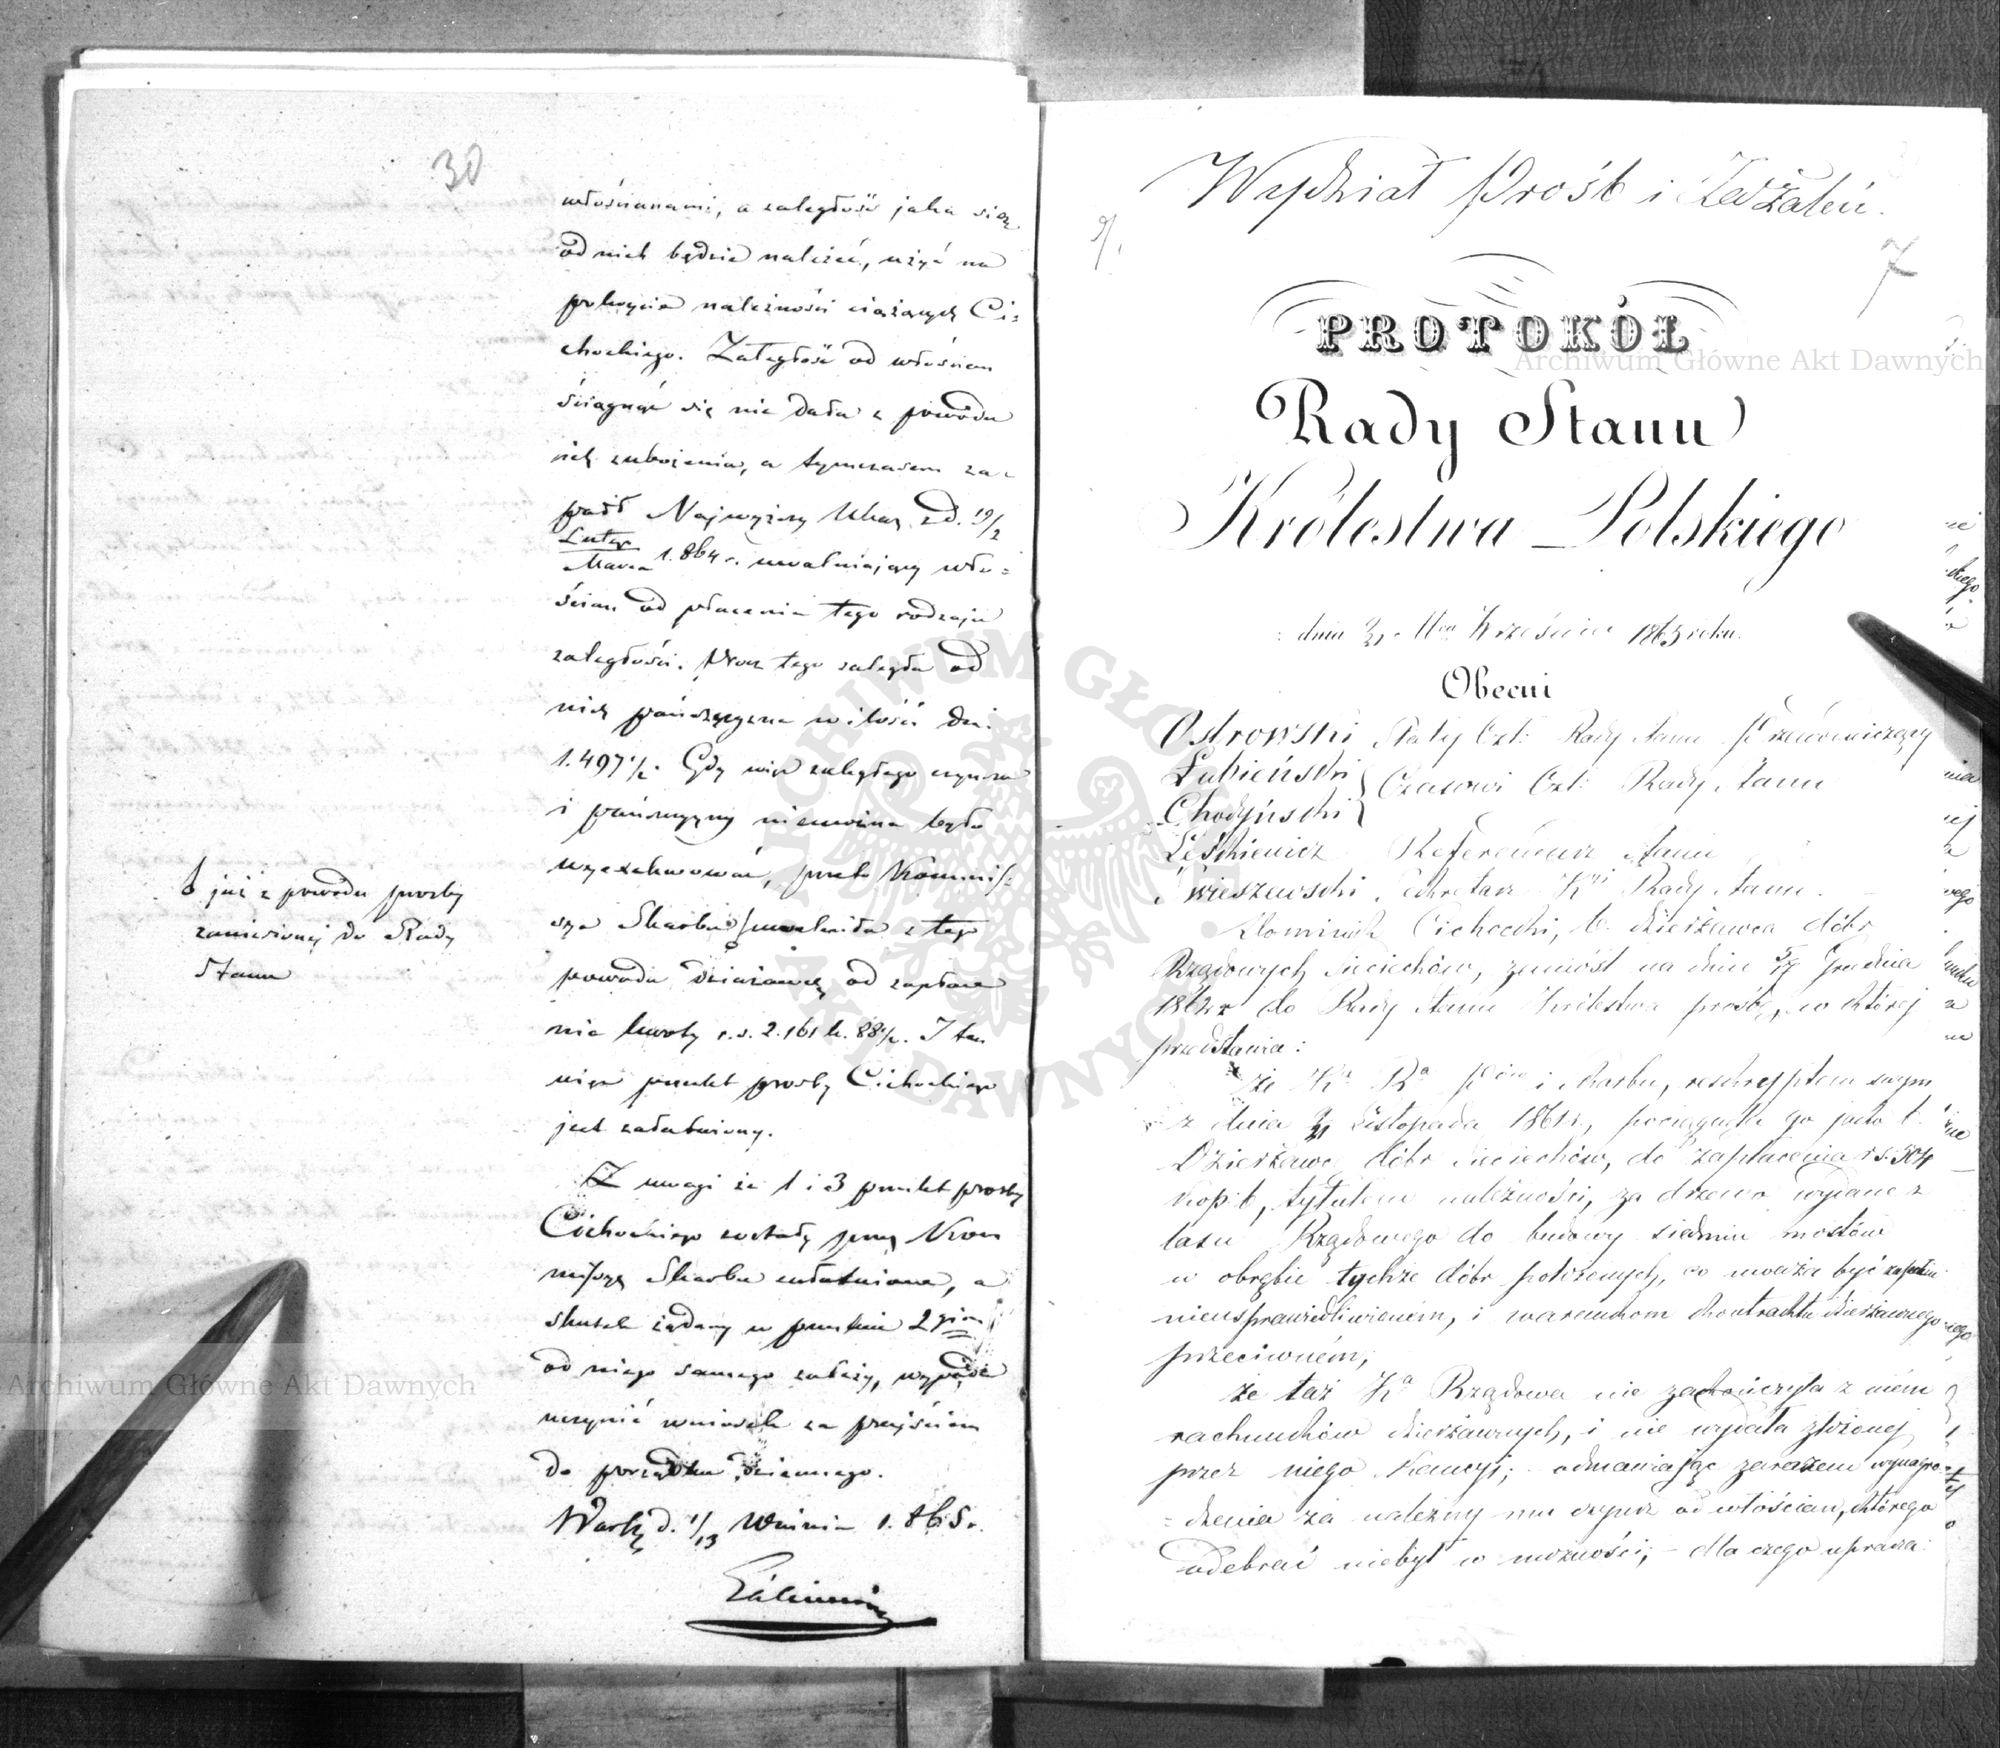 30
włościanami, a zaległość jaka się
od nich będzie należeć, użyć na
pokrycie należności ciążących Ci=
chockiego. Zaległość od włościan
ściągnąć się nie dała z powodu
ich zubożenia, a tymczasem za=
padł Najwyższy Ukaz z d. 19/2
Lutego
Marca 1.864 r. uwalniający wło=
ścian od płacenia tego rodzaju
zaległości. Prócz tego zaległa od
nich pańszczyzna w ilości dni
1.497½. Gdy więc zaległego czynszu
i pańszczyzny niemożna było
wyexekwować, przeto Kommis=
sya Skarbu uwolniła z tego
powodu dzierżawcę od zapłace
nia kwoty r.s. 2.161 k. 88½. I ten
więc punkt prośby Cichockiego
jest załatwiony.
Z uwagi że 1 i 3 punkt prośby
Cichockiego zostały przez Kom
missyę Skarbu załatwione, a
skutek żądany w punkcie 2gim
od niego samego zależy, wypada
uczynić wniosek za przejściem
do porządku dziennego.
Warsz. d. 1/13 Września 1.865 r.
już z powodu prośby
zaniesionej do Rady
Stanu
Wydział Próśb i Zażaleń.
7
PROTOKÓŁ
Rady Stanu
Królestwa Polskiego
dnia Mca Września 1865 roku.
Obecni
Ostrowski Stały Czł: Rady Stanu Przewodniczący
Łubieński
Chodyński } Czasowi Czł: Rady Stanu
Leśkiewicz Referendarz Stanu
Sekretarz Rady Stanu.
Dominik Cichocki, b. dzierżawca dóbr
Rządowych Sieciechów, zaniósł na dniu 5/17 Grudnia
1862 r do Rady Stanu Królestwa prośbę, w której
przedstawia:
że Ka Ra Pów i Skarbu, reskryptem swym
z dnia Listopada 1861 r, pociągnęła go jako b.
Dzierżawcę dóbr Sieciechów, do zapłacenia rs. 504
kop. 6, tytułem należności, za drzewo wydane z
lasu Rządowego do budowy siedmiu mostów
w obrębie tychże dóbr położonych, co uważa być zupełnie
nieusprawiedliwionem, i warunkom kontraktu dzierżawnego
przeciwném;
że taż Ka Rządowa nie zakończyła z nim
rachunków dzierżawnych, i nie wydała złożonej
przez niego Kaucyi; odmawiając zarazem wynagro=
=dzenia za należny mu czynsz od włościan, którego
odebrać niebył w możności; – dla czego uprasza:
Archiwum Główne Akt Dawnych
Archiwum Główne Akt Dawnych
ARCHIWUM GŁÓWNE AKT DAWNYCH